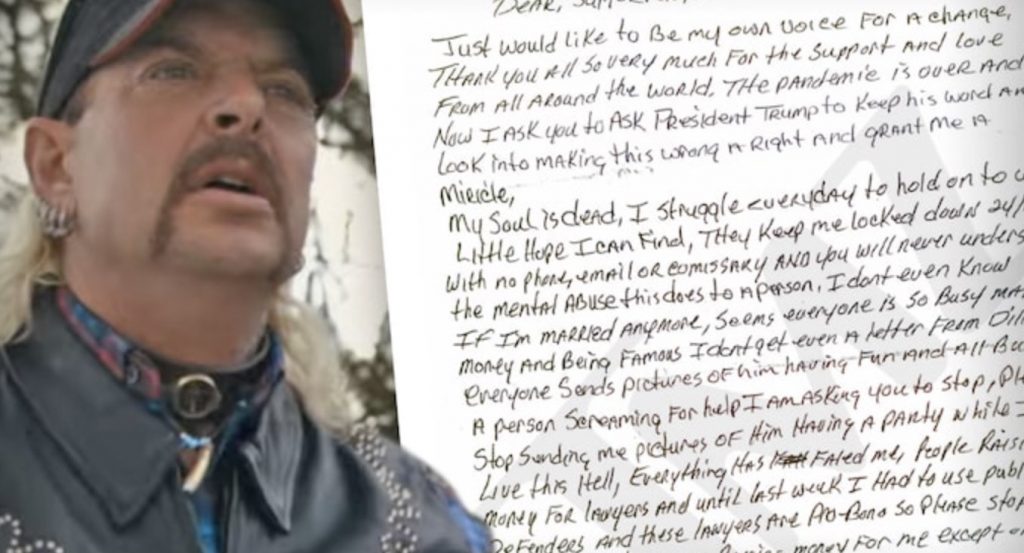 Dear, Support
Just would like to Be my own Voice For A change,
THANK you All So very Much For the Support And Love
From All Around the World, THe pandemic is over And
Now I ask you to Ask President Trump to Keep his word
Look into making this wrong A Right And grant me A
Miricle,
My Soul is dead, I struggle everyday to hold on to
Little Hope I can Find, They Keep me locked down 24/
With no phone, email OR Comissary AND you will never
the mental ABuse this does to A person, I dont even Know
IF I'm married Anymore, Seems everyone is So Busy
Money And Being Famous I dont get even A letter From
everyone Sends pictures OF him having Fun And All
A person Screaming For help I am Asking you to Stop,
Stop Sending me pictures OF Him Having A PARTY while I
Live this Hell, Everything Has Fated me, People
Money For lawyers And until last week I Had to use
Defenders And these lawyers Are Pro-Bono So Please stop
money For me except